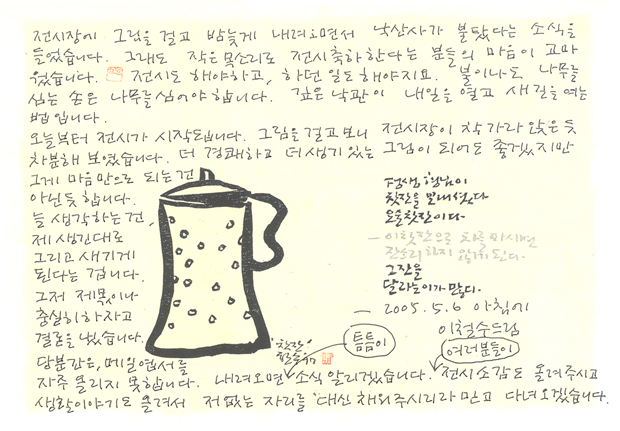 전시장에 그림을 걸고 밤늦게 내려오면서 낙산사가 불탔다는 소식을
들었습니다. 그래도 작은 목소리로 전시축하한다는 분들의 마음이 고마
웠습니다. 전시도 해야하고, 하던 일도 해야지요. 불이나도 나무를
심는 손은 나무를 심어야 합니다. 깊은 낙관이 내일을 열고 새길을 여는
법입니다.
오늘부터 전시가 시작됩니다. 그림을 걸고보니 전시장이 착 가라앉은 듯
차분해 보였습니다. 더 경쾌하고 더 생기있는 그림이 되어도 좋겠지만
그게 마음만으로 되는건
아닌듯 합니다.
늘 생각하는 건,
제 생긴대로
그리고 새기게
된다는 겁니다.
그저 제목이나
충실히 하자고
결론을 냈습니다.
당분간은, 메일엽서를
자주 올리지 못합니다. 내려오면 틈틈이 소식 알리겠습니다. 여러분들이 전시소감도 올려주시고
생활이야기도 올려서 저 없는 자리를 대신 채워주시리라 믿고 다녀오겠습니다.
찻잔을 만들었다
오늘 찻잔이다
이 찻잔으로 차를 마시면
잔소리 하지 않게 된다.
그 잔을
달라는 이가 많다.
2005.5.6 아침에
이철수드림